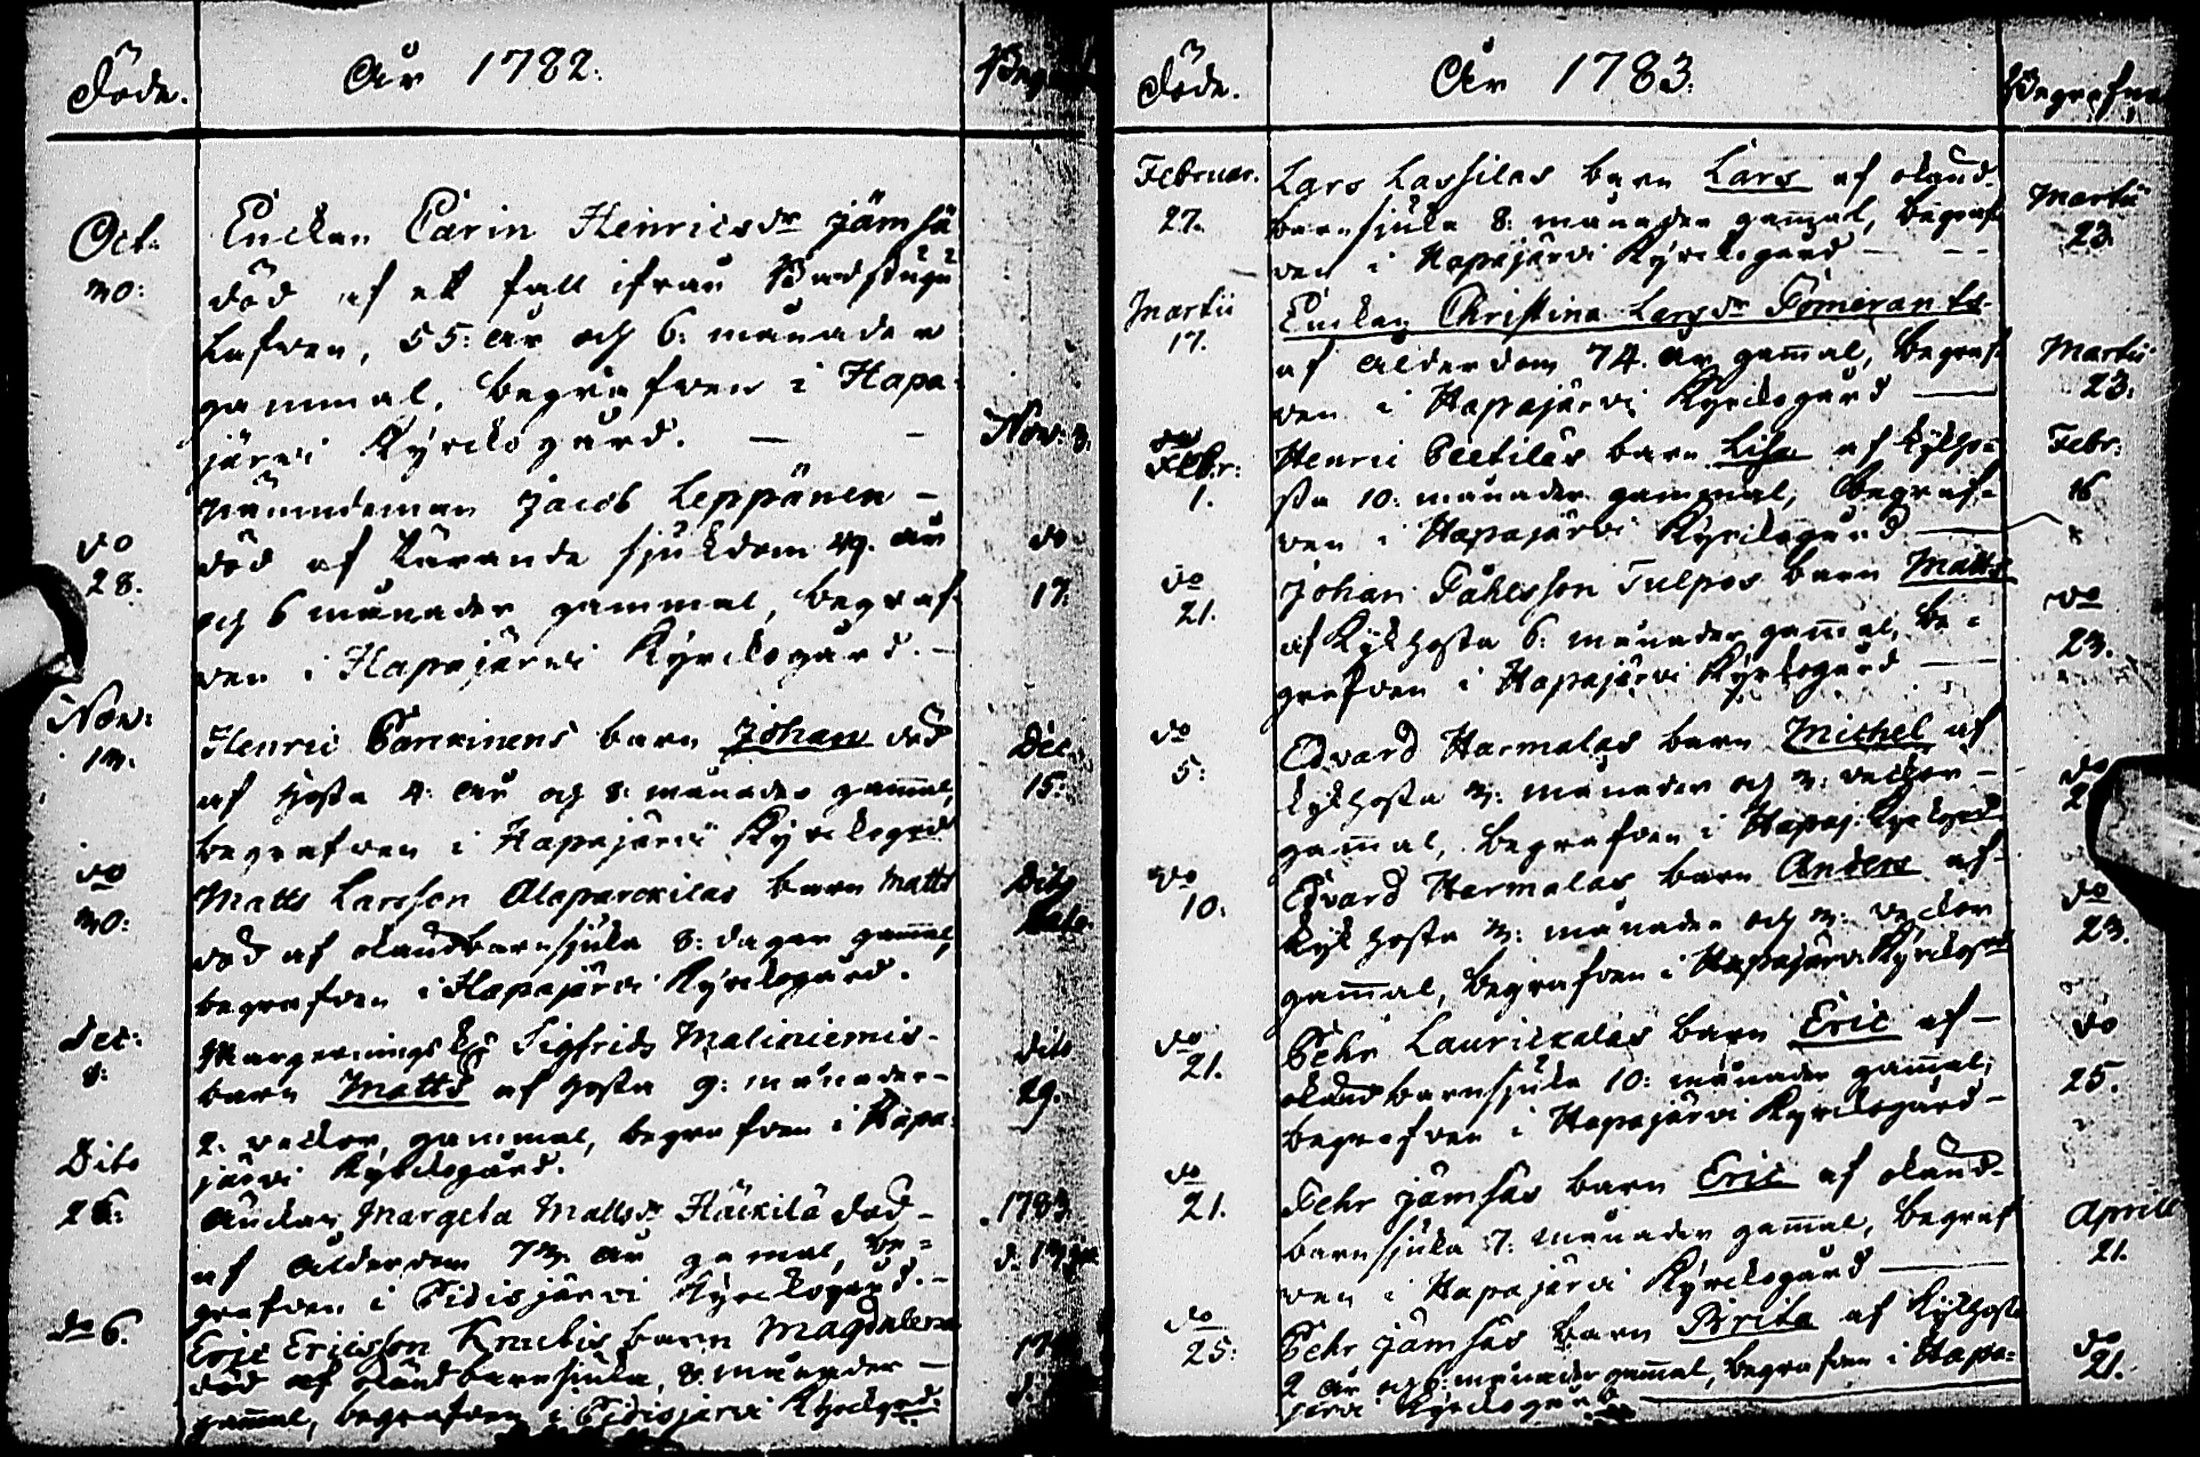 Döde.
År 1782.
Oct:
30:
Enckan Carin Henricsdr Jämsä
död af ett fall ifrån Badstugu
Lafven, 55: år och 6: månader
gammal, begrafven i Hapa-
järvi Kyrckogård. — –
Nov: 3.
do
28.
Nämndeman Jacob Leppänen –
död af tärande sjukdom år
och 6 månader gammal, begraf-
ven i Hapajärvi Kyrckogård. –
do
17.
Nov:
13.
Henric Parckinens barn Johan död
af hosta 4: år och 8: månader gammal,
begrafven i Hapajärvi Kyrckogrd
Dec.
15:
do
30:
Matts Larsson Alaparckilas barn Matts
död af okändbarnsjuka 8: dagar gammal,
begrafven i Hapajärvi Kyrckogård.
Dito
Dato.
Dec:
8:
Sigfrids Maliniemis-
barn Matts af hosta 9: månader-
2. veckor, gammal, begrafven i Hapa-
järvi Kyrckogård.
dito
29.
Dito
26:
Enckan Margeta Mattsdr Häckilä död-
af ålderdom 73. år gamal, be=
grafven i Pidisjärvi Kyrckogård.-
1783
do 6.
Eric Ericsson Knuutis barn Magdalena
död af okändbarnsjuka, 8 månader –
gammal, begrafven i Pidisjärvi Kyrckogrd.
Döde.
År 1783.
Begrafne
Februar.
27.
Lars Lassilas barn Lars af okänd-
barnsjuka 8: månader gammal, begraf-
ven i Hapajärvi Kyrckogård – – –
Martii
23.
Martii
17.
Enckan Christina Larsdr Pomeran
af ålderdom 74. år gammal, begraf-
ven i Hapajärvi Kyrckogård —
Martii
23.
Febr:
1.
Henric Pietiläs barn Lisa af kikho-
sta 10: månader gammal, begraf-
ven i Hapajärvi Kyrckogård —
Febr:
16
do
21.
Johan Påhlsson Tulpos barn Matts
af Kikhosta 6: månader gammal, be-
grafven i Hapajärvi Kyrckogård — –
do
23.
do
5:
Edvard Harmalas barn Michel af
kikhosta 3: månader och 3: veckor –
gammal, begrafven i Hapaj. Kyrckogrd
do
do
10:
Edvard Harmalas barn Anders af-
kikhosta 3: månader och 3: veckor
gammal, begrafven i Hapajärvi Kyrckogrd
do
23.
do
21.
Pehr Laurickalas barn Eric af –
okändbarnsjuka 10: månader gammal,
begrafven i Hapajärvi Kyrckogård –
do
25.
do
21.
Pehr Jämsäs barn Eric af okänd-
barnsjuka 7: månader gammal, begraf
ven i Hapajärvi Kyrckogård —
Aprill
21.
do
25:
Pehr Jämsäs barn Brita af Kikhosta
2 år och 6: månader gammal, begrafven i Hapa=
järvi Kyrckogård —
do
21.